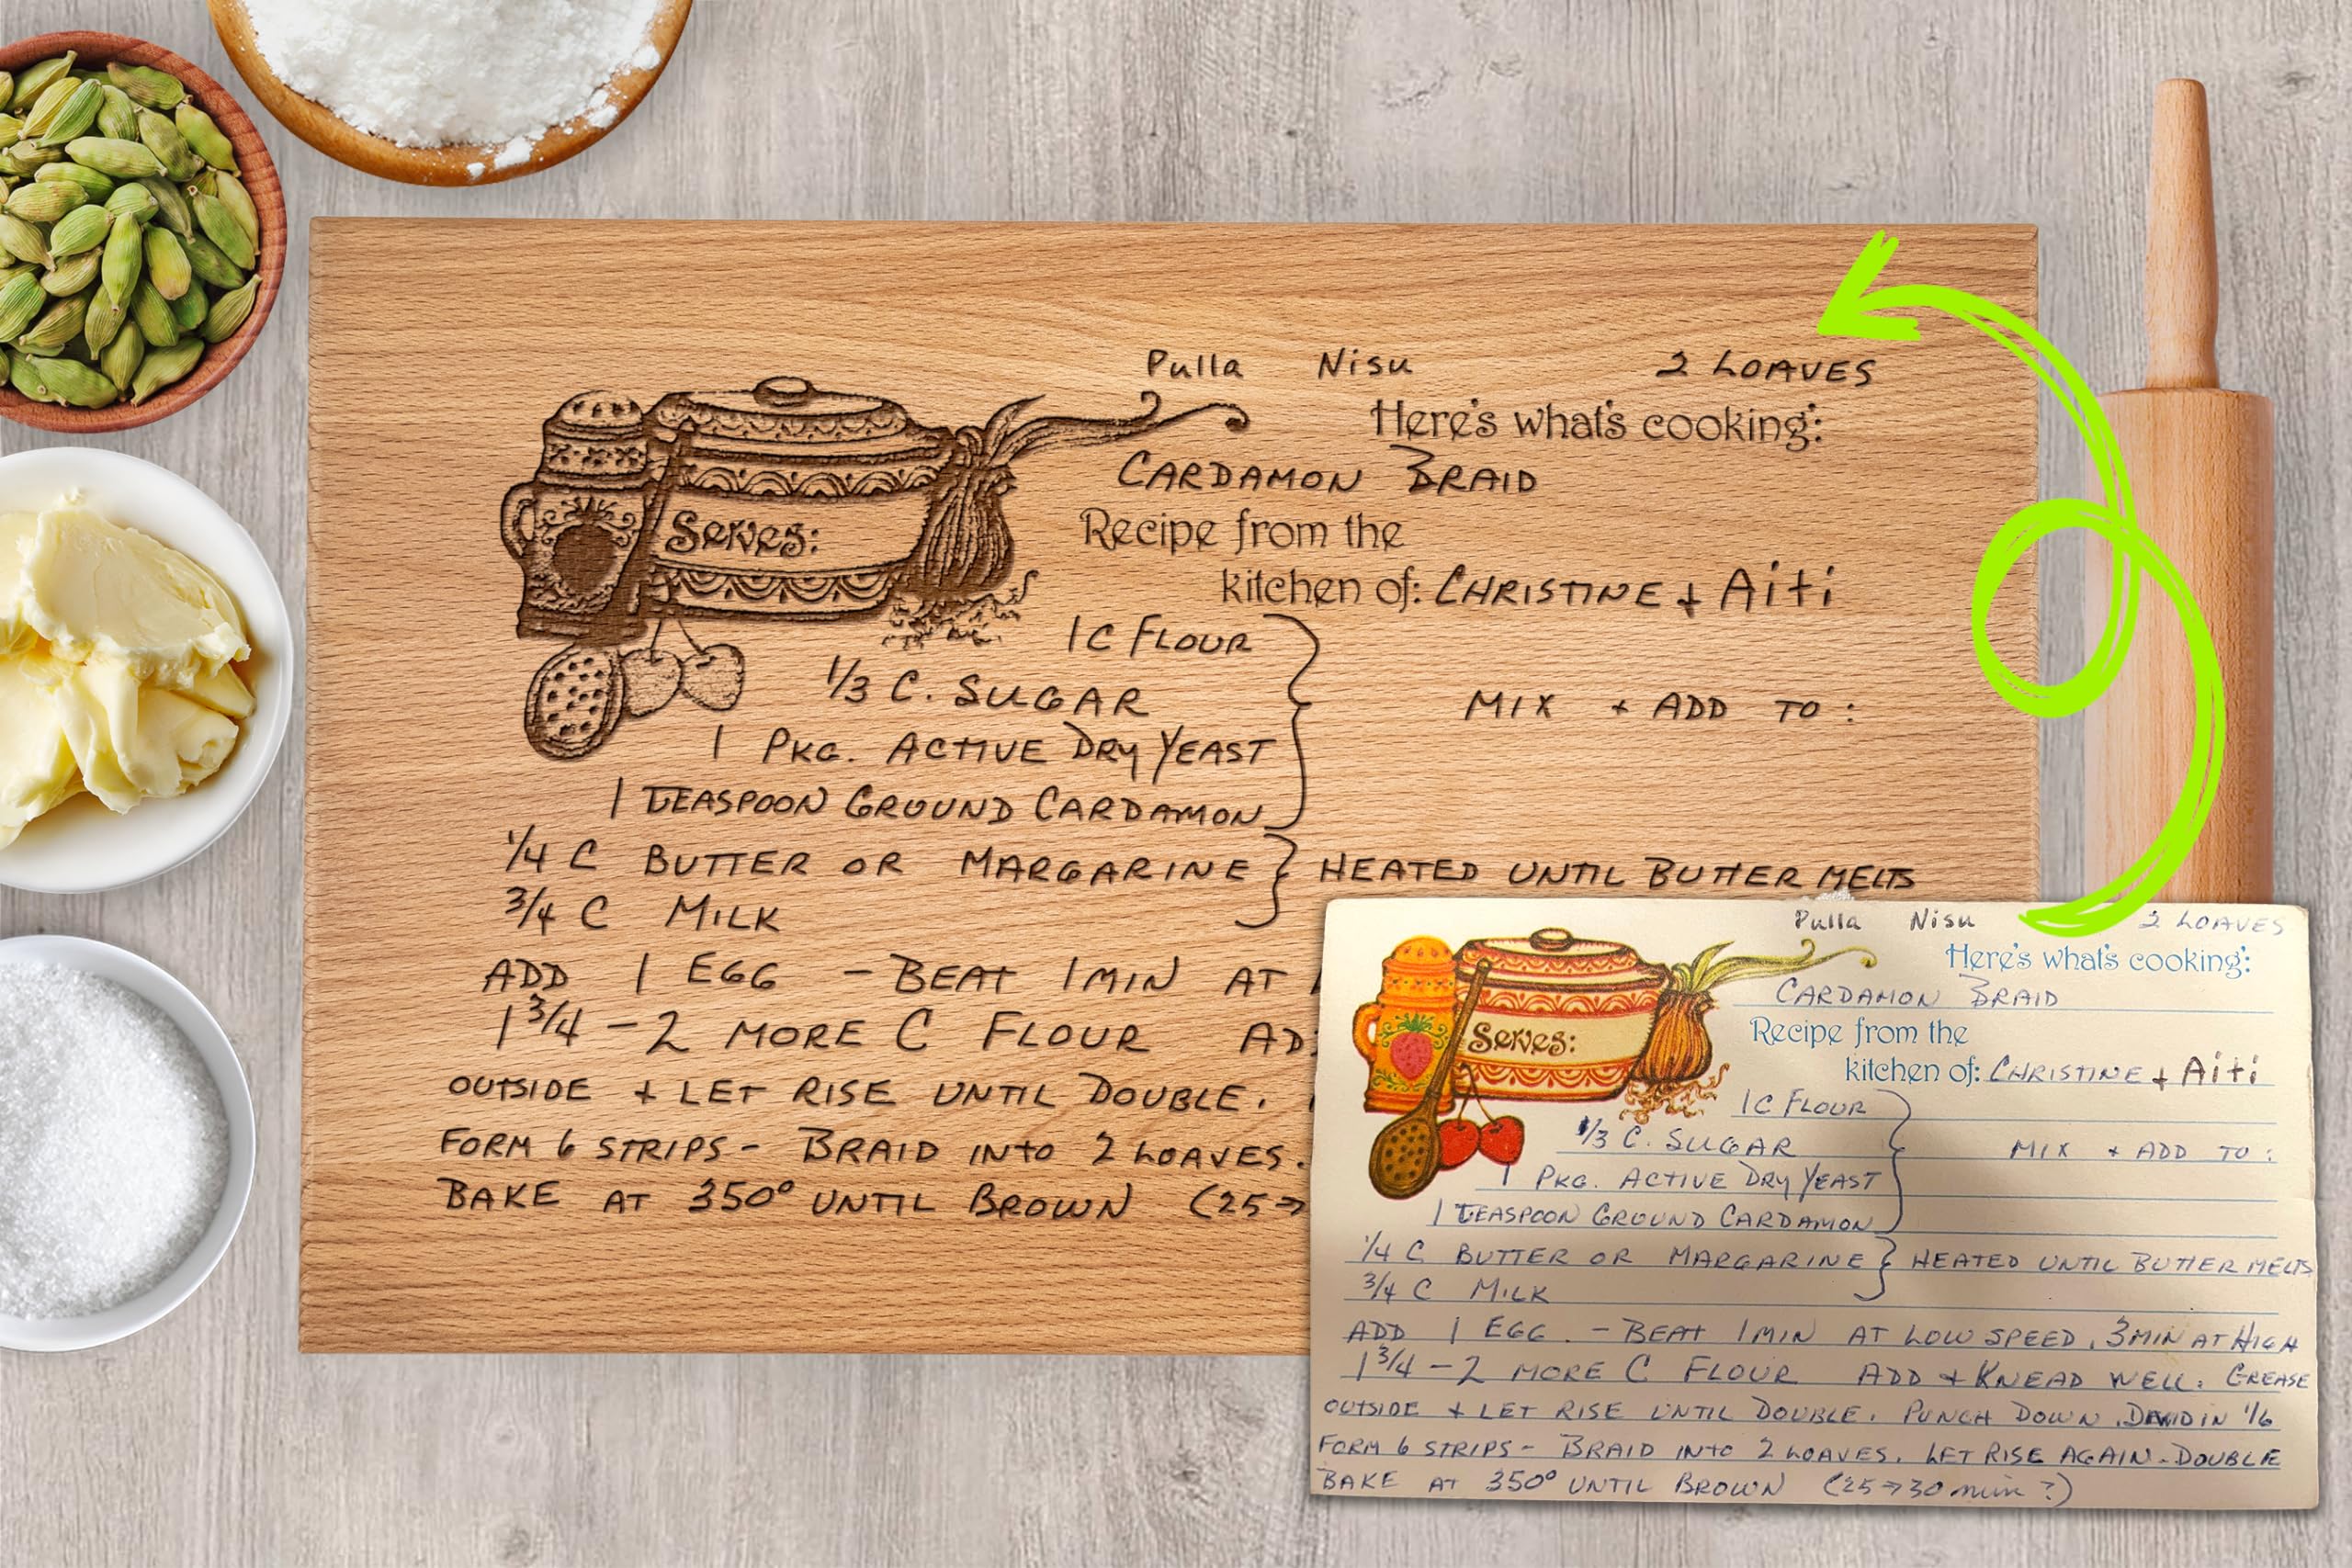 Pulla Nisu 2 LOAVES
Here's what's cooking:
CARDAMON BRAID
Serves:
Recipe from the
kitchen of: CHRISTINE + Aiti
1 C FLOUR
1/3 C. SUGAR
MIX + ADD TO:
1 PKG. ACTIVE DRY YEAST
1 TEASPOON GROUND CARDAMON
1/4 C BUTTER OR MARGARINE HEATED UNTIL BUTTER MELTS
3/4 C MILK
ADD 1 EGG - BEAT 1 MIN AT
1 3/4 - 2 MORE C FLOUR AD
OUTSIDE + LET RISE UNTIL DOUBLE.
FORM 6 STRIPS - BRAID INTO 2 LOAVES.
BAKE AT 350° UNTIL BROWN (25→
Pulla Nisu 2 LOAVES
Here's what's cooking:
CARDAMON BRAID
Serves:
Recipe from the
kitchen of: CHRISTINE + Aiti
1 C FLOUR
1/3 C. SUGAR
MIX + ADD TO:
1 PKG. ACTIVE DRY YEAST
1 TEASPOON GROUND CARDAMON
1/4 C BUTTER OR MARGARINE HEATED UNTIL BUTTER MELTS
3/4 C MILK
ADD 1 EGG. - BEAT 1 MIN AT LOW SPEED, 3 MIN AT HIGH
1 3/4 - 2 MORE C FLOUR ADD + KNEAD WELL. GREASE
OUTSIDE + LET RISE UNTIL DOUBLE. PUNCH DOWN. IN 1/6
FORM 6 STRIPS - BRAID INTO 2 LOAVES. LET RISE AGAIN - DOUBLE
BAKE AT 350° UNTIL BROWN (25→30 min?)